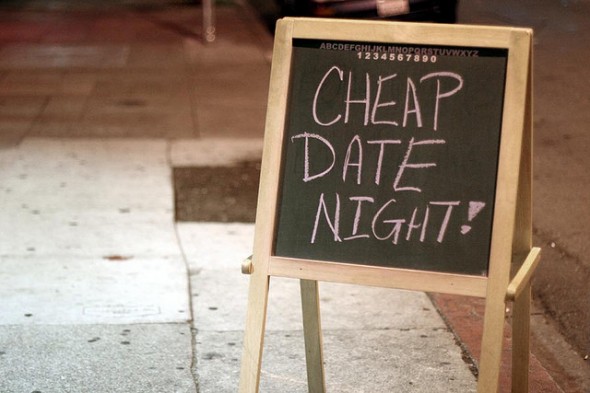 ABCDEFGHIJKLMNOPQRSTUVWXYZ
1234567890
CHEAP
DATE
NIGHT!